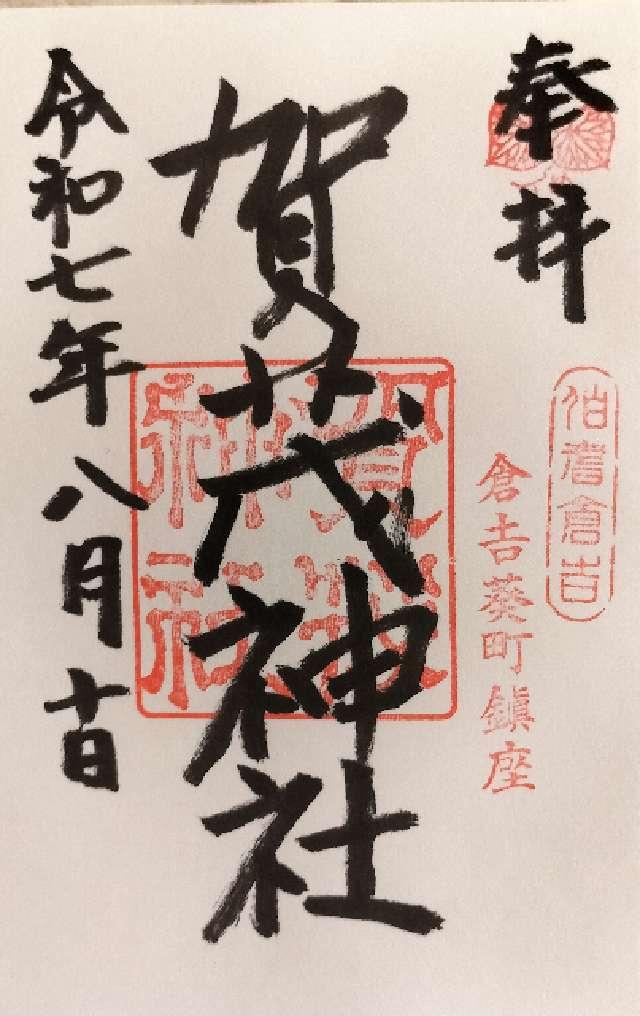 奉拝
伯耆倉吉
倉吉葵町鎮座
賀茂神社
賀茂神社
令和七年八月十日